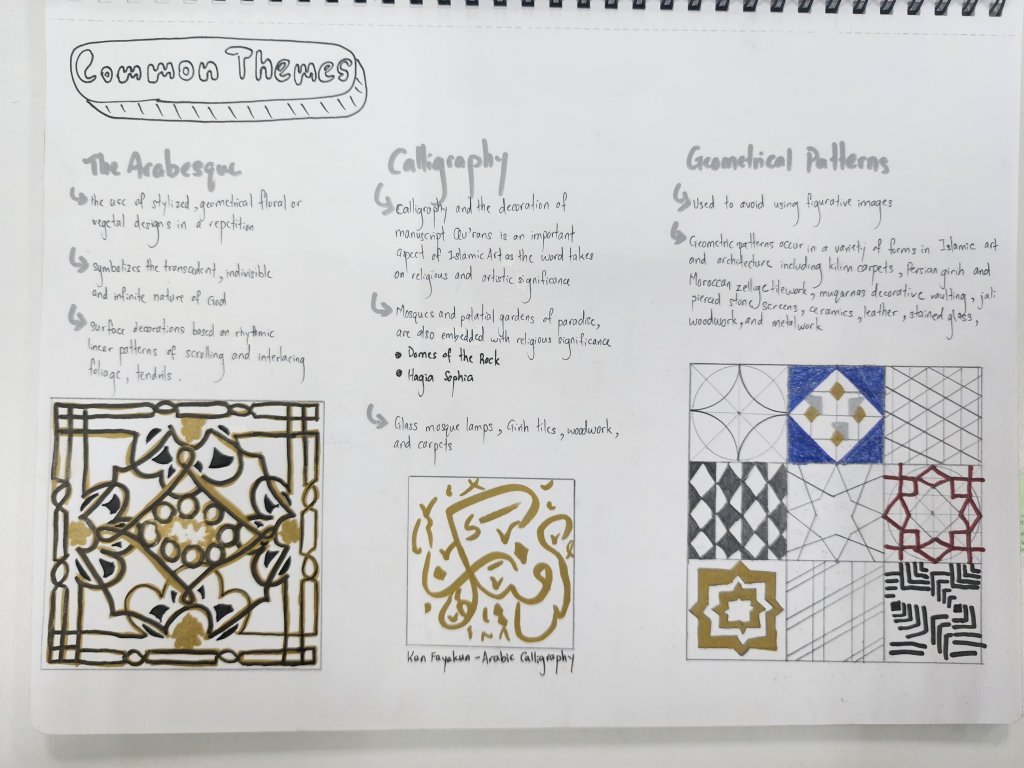 Common Themes
The Arabesque
the use of stylized, geometrical floral or
vegetal designs in a repetition
symbolizes the transcedent, indivisible
and infinite nature of God
Surface decorations based on rhythmic
linear patterns of scrolling and interlacing
foliage, tendrils.
Calligraphy
Calligraphy and the decoration of
manuscript Qu'rans is an important
aspect of Islamic Art as the word takes
on religious and artistic significance
Mosques and palatial gardens of paradise,
are also embedded with religious significance
• Domes of the Rock
• Hagia Sophia
Glass mosque lamps, Girih tiles, woodwork,
and carpets
Kun Fayakun - Arabic Calligraphy
Geometrical Patterns
Used to avoid using figurative images
Geometric patterns occur in a variety of forms in Islamic art
and architecture including kilim carpets, Persian girih and
Moroccan zellige tilework, muqarnas decorative vaulting, jali
pierced stone screens, ceramics, leather, stained glass,
woodwork, and metalwork